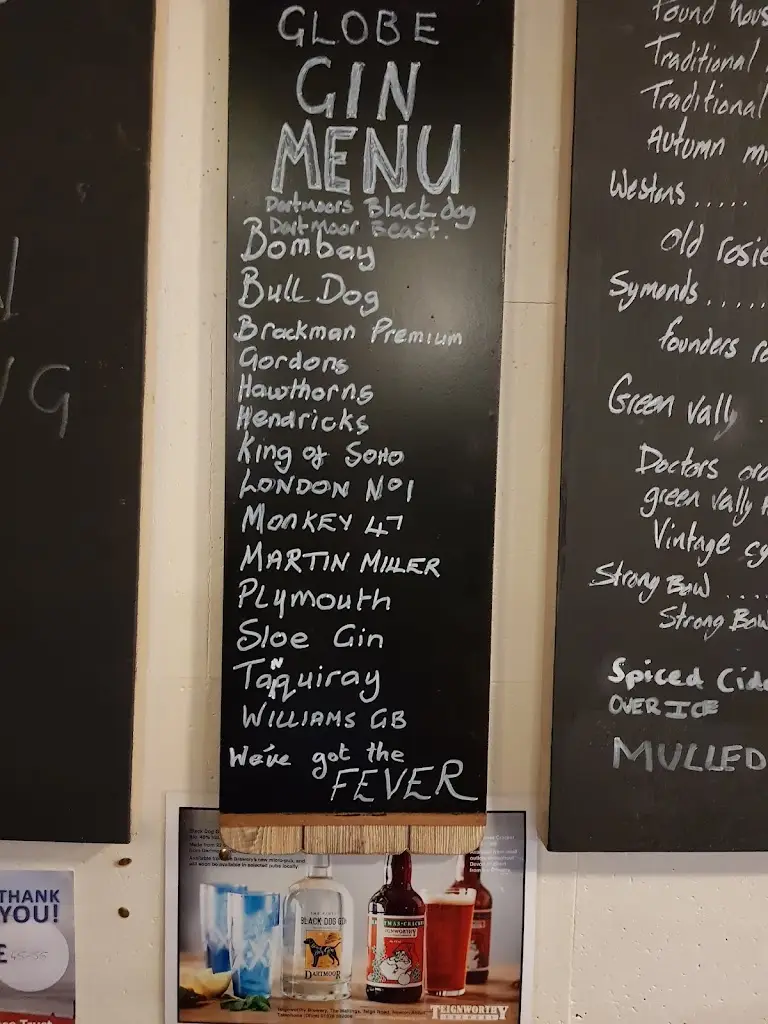 GLOBE
GIN
MENU
Dartmoors Black dog
Dartmoor Beast.
Bombay
Bull Dog
Brockman Premium
Gordons
Hawthorns
Hendricks
King of SoHo
LONDON Nº1
MONKEY 47
MARTIN MILLER
Plymouth
Sloe Gin
Tanquiray
WILLIAMS GB
We've got the
FEVER
Traditional
Traditional
Autumn
Westons .....
Old rosie
Symonds .....
founders
Green vally .
Doctors
green vally
Vintage
Strong Bow ....
Strong Bow
Spiced
OVER ICE
MULLED
BLACK DOG
DARTMOOR
TEIGNWORTHY
TEIGNWORTHY
THANK
YOU!
£
Trust